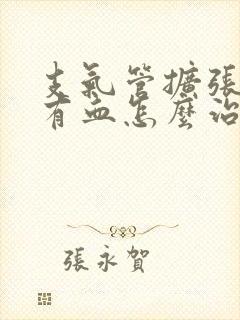 支氣管擴張
有血怎麼治
張永賀